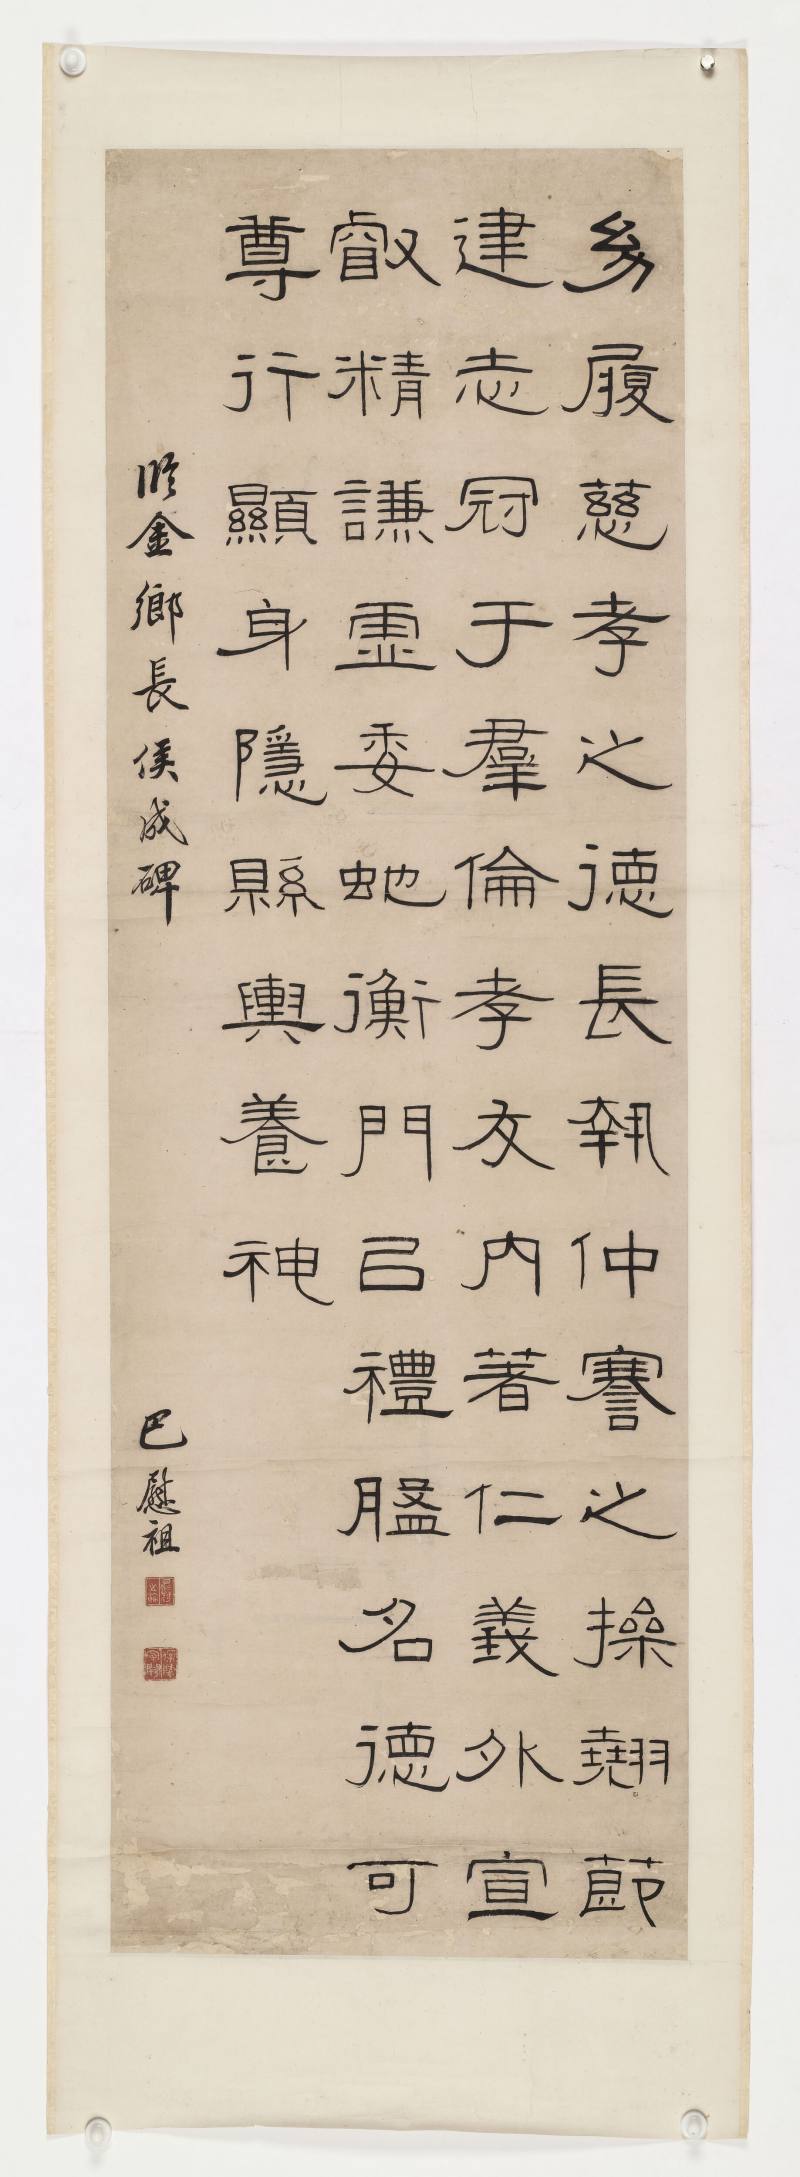 幼履慈孝之德長執仲謇之操翹節
建志冠于羣倫孝友内著仁義外宣
叡精謙虛委虵衡門㠯禮名德可
尊行顯身隱縣輿養神
臨金鄉長侯成碑
巴慰祖